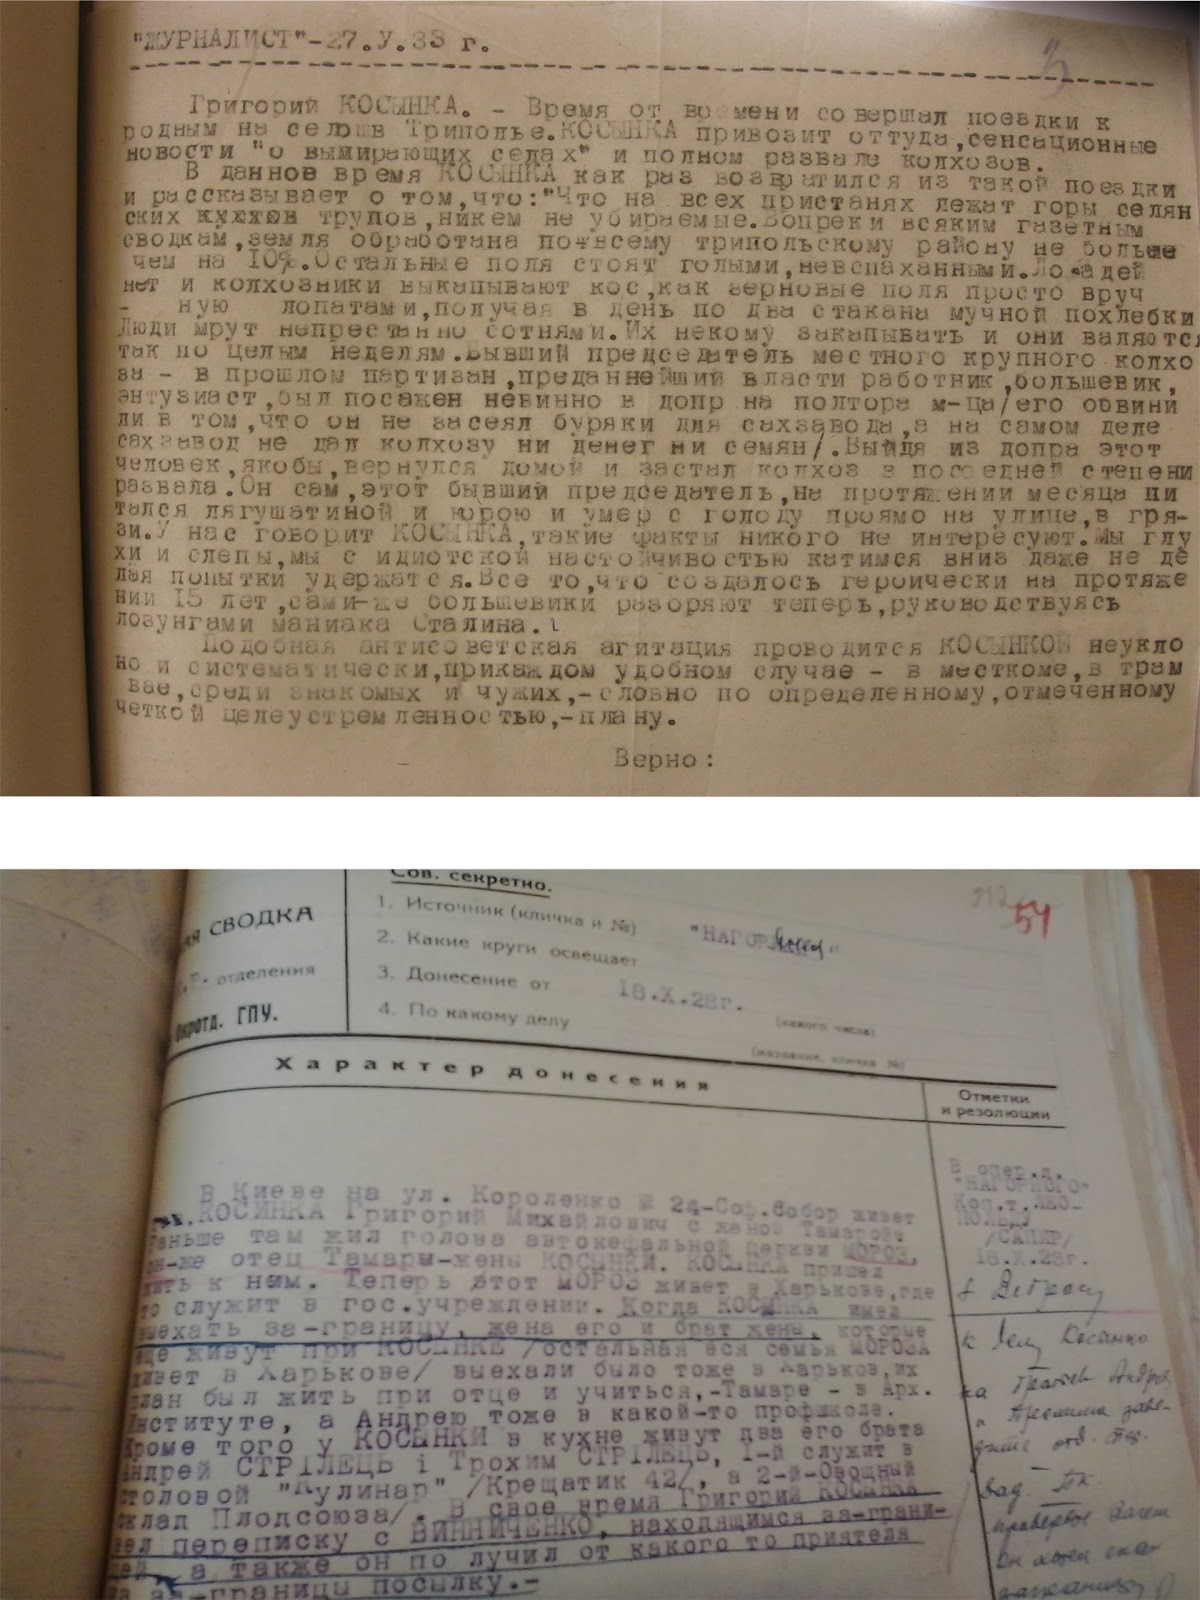 "ЖУРНАЛИСТ"-27.У.33 г.
3
Григорий КОСЫНКА. - Время от времени совершал поездки к
родным на село в Триполье. КОСЫНКА привозит оттуда, сенсационные
новости "о вымирающих селах" и полном развале колхозов.
В данное время КОСЫНКА как раз возвратился из такой поездки
и рассказывает о том, что: "Что на всех пристанях лежат горы селян
ских трупов, никем не убираемые. Вопреки всяким газетным
сводкам, земля обработана по-всему трипольскому району не больше
чем на 10%. Остальные поля стоят голыми, невспаханными. Лошадей
нет и колхозники выкапывают кос, как зерновые поля просто вруч
- ную лопатами, получая в день по два стакана мучной похлебки
Люди мрут непрестанно сотнями. Их некому закапывать и они валяются
так по целым неделям. Бывший председатель местного крупного колхо
за - в прошлом партизан, преданнейший власти работник, большевик,
энтузиаст, был посажен невинно в допр на полтора м-ца/его обвини
ли в том, что он не засеял буряки для сахзавода, а на самом деле
сахзавод не дал колхозу ни денег ни семян/. Выйдя из допра этот
человек, якобы, вернулся домой и застал колхоз в последней степени
развала. Он сам, этот бывший председатель, на протяжении месяца пи
тался лягушатиной и корою и умер с голоду прямо на улице, в гря-
зи. У нас говорит КОСЫНКА, такие факты никого не интересуют. Мы глу
хи и слепы, мы с идиотской настойчивостью катимся вниз даже не де
лая попытки удержатся. Все то, что создалось героически на протяже
нии 15 лет, сами-же большевики разоряют теперь, руководствуясь
лозунгами маниака Сталина.
Подобная антисоветская агитация проводится КОСЫНКОЙ неукло
но и систематически, прикаждом удобном случае - в месткоме, в трам
вае, среди знакомых и чужих, - словно по определенному, отмеченному
четкой целеустремленностью, - плану.
Верно:
Сов. секретно.
54
АЯ СВОДКА
отделения
Окротд. ГПУ.
1. Источник (кличка и №) "НАГОРНЫЙ"
2. Какие круги освещает
3. Донесение от 18.X.28г.
(какого числа)
4. По какому делу
(название, кличка №)
Характер донесения
Отметки
и резолюции
В Киеве на ул. Короленко № 24-Соф.Собор живет
КОСИНКА Григорий Михайлович с женой Тамарой
Раньше там жил голова автокефальной церкви МОРОЗ,
он-же отец Тамары-жены КОСЫНКИ. КОСЫНКА пришел
жить к ним. Теперь этот МОРОЗ живет в Харькове, где
то служит в гос.учреждении. Когда КОСЫНКА имел
выехать за-границу, жена его и брат жены, которые
еще живут при КОСЫНКЕ /остальная вся семья МОРОЗА
живет в Харькове/ выехали было тоже в Харьков, их
план был жить при отце и учиться, -Тамаре - в Арх.
Институте, а Андрею тоже в какой-то профшколе.
Кроме того у КОСЫНКИ в кухне живут два его брата
Андрей СТРІЛЕЦЬ і Трохим СТРІЛЕЦЬ, 1-й служит в
столовой "Кулинар" /Крещатик 42/, а 2-й-Овощный
склад Плодсоюза/. В свое время Григорий КОСЫНКА
вел переписку с ВИННИЧЕНКО, находящимся за-грани-
цей, а также он по лучил от какого то приятеля
из за-границы посылку.-
В опер.д.
"НАГОРНОГО"
Коп.т.ЛЕО-
ПОЛЬДУ
/САПИР/
18.X.28г.
к делу Косинко